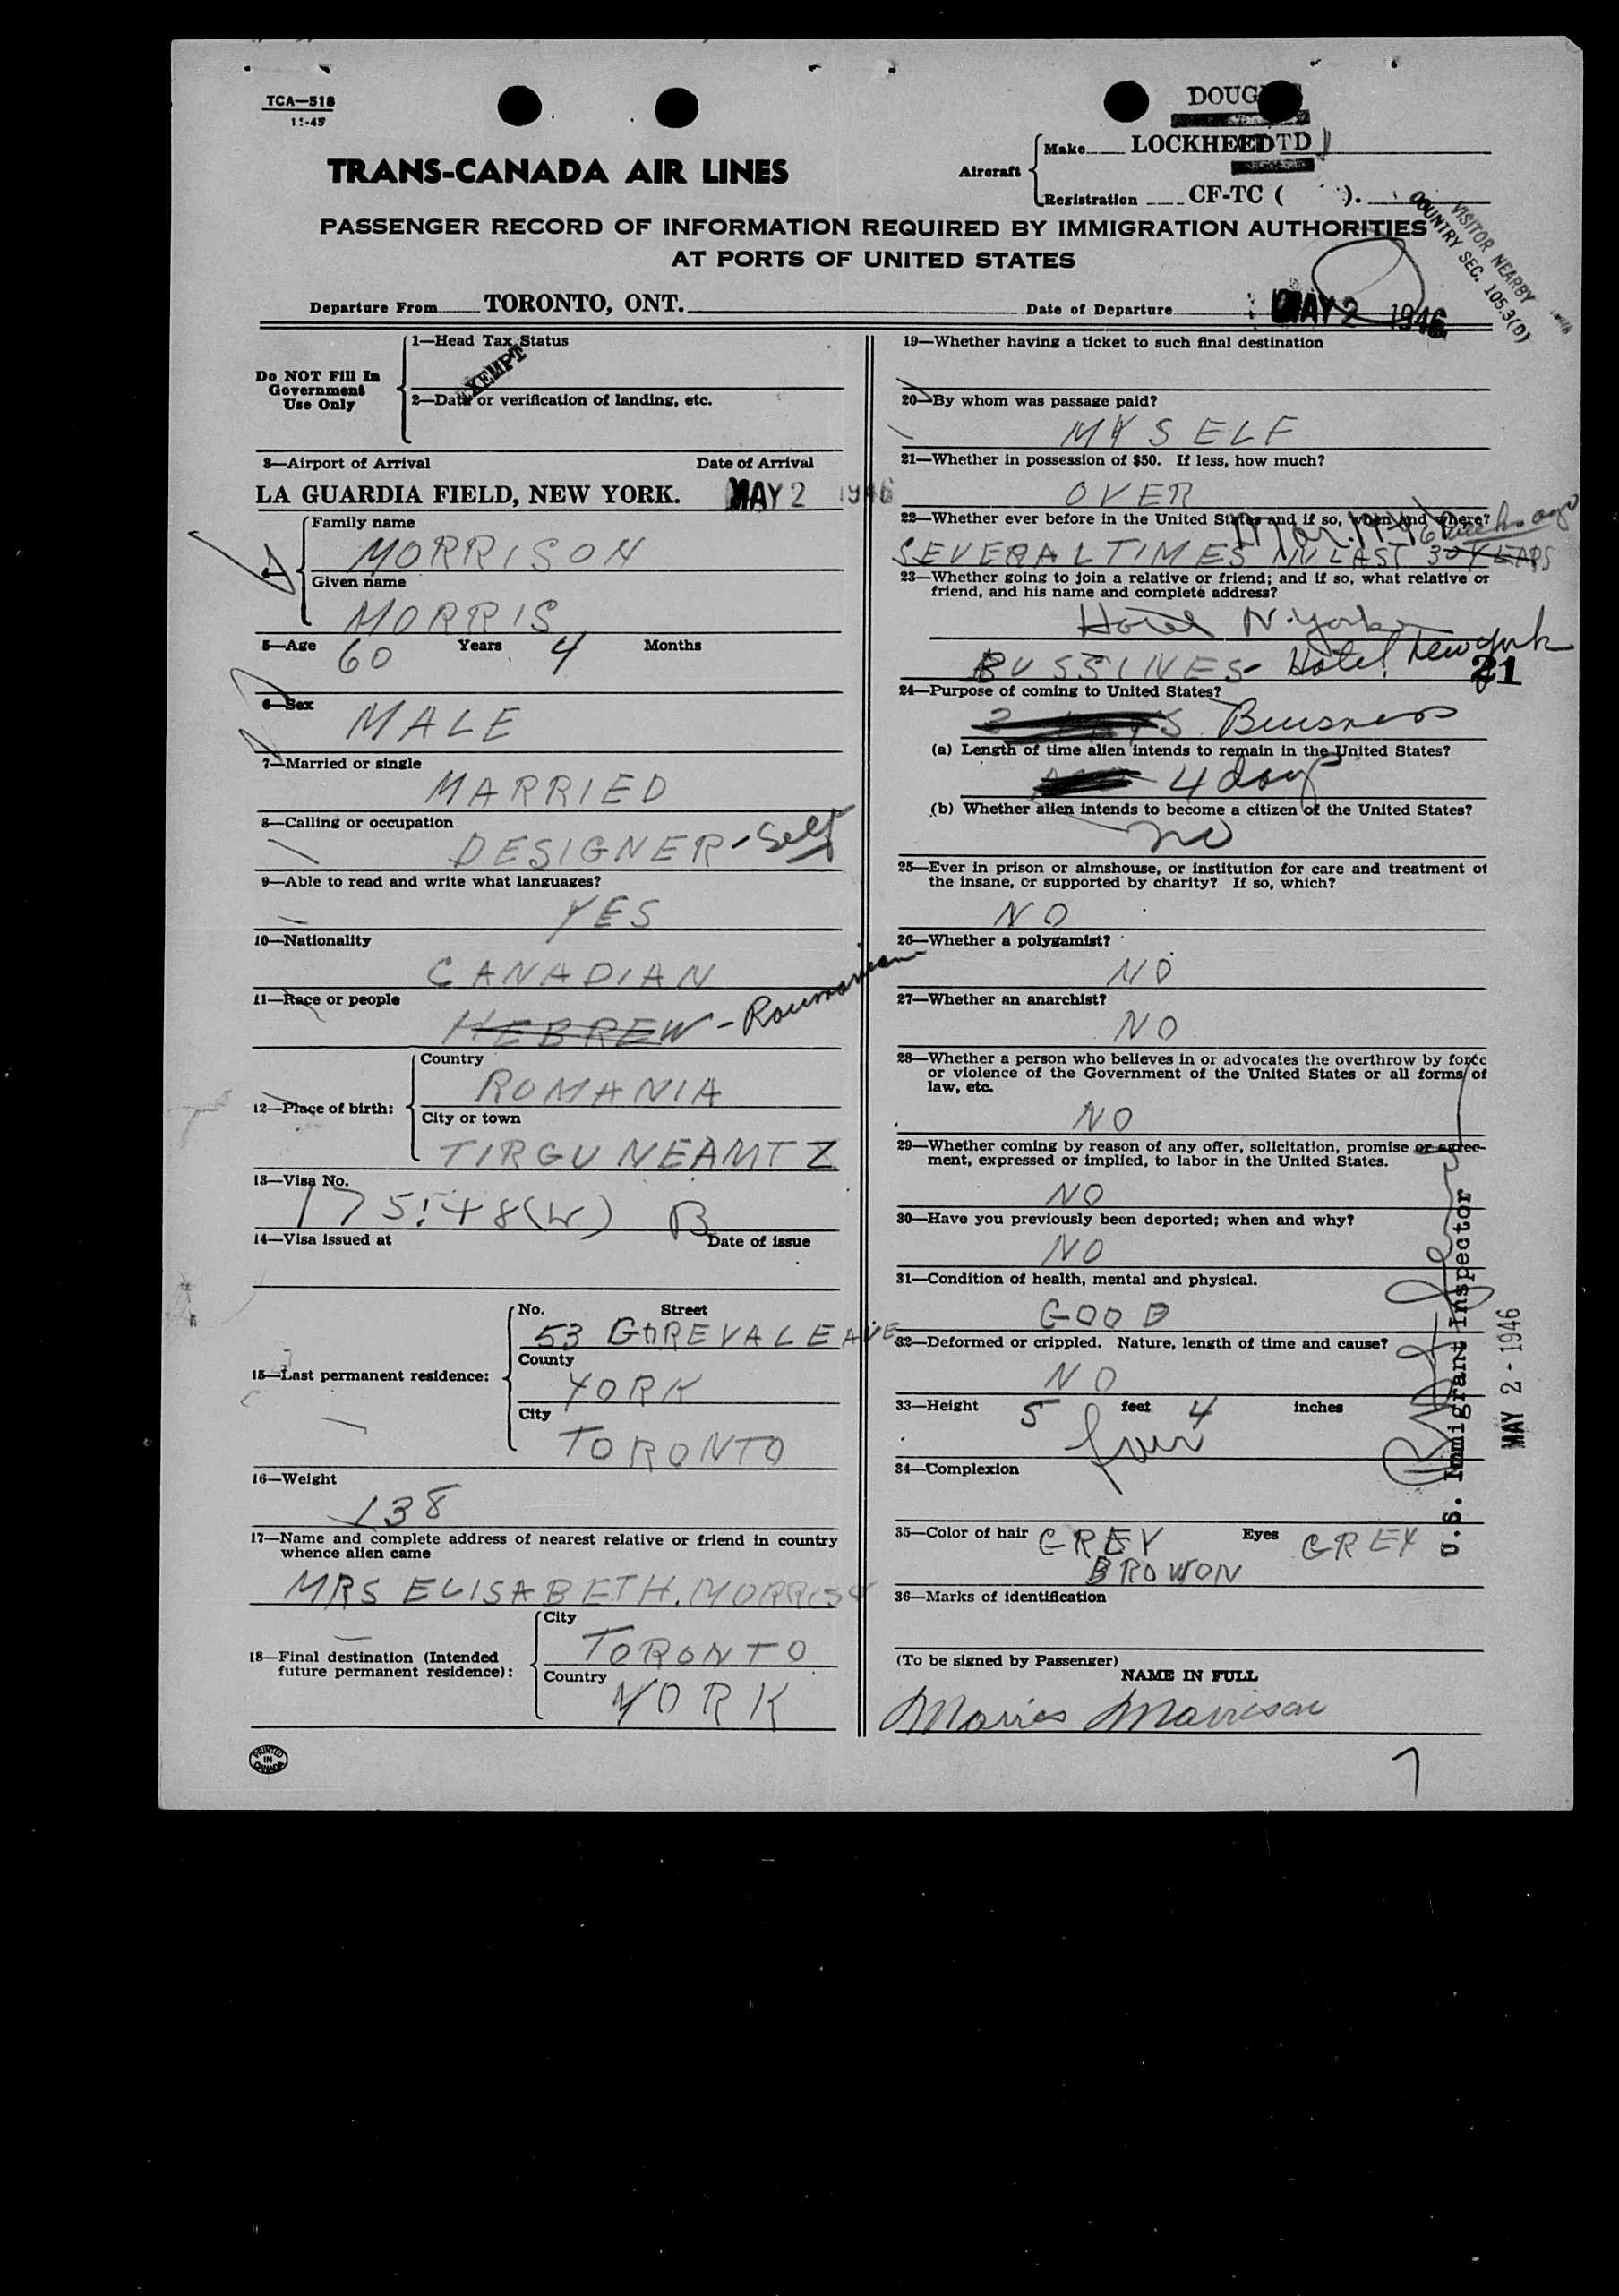 TCA—518
11-45
DOUG
TRANS-CANADA AIR LINES
Aircraft
Make LOCKHEED LTD
Registration CF-TC ( ).
VISITOR NEARBY
COUNTRY SEC. 105.3(0)
PASSENGER RECORD OF INFORMATION REQUIRED BY IMMIGRATION AUTHORITIES
AT PORTS OF UNITED STATES
Departure From TORONTO, ONT.
Date of Departure MAY 2 1946
Do NOT Fill In
Government
Use Only
1—Head Tax Status
EXEMPT
2—Date or verification of landing, etc.
3—Airport of Arrival Date of Arrival
LA GUARDIA FIELD, NEW YORK. MAY 2 1946
4—
Family name
MORRISON
Given name
MORRIS
5—Age 60 Years 4 Months
6—Sex
MALE
7—Married or single
MARRIED
8—Calling or occupation
DESIGNER - Self
9—Able to read and write what languages?
YES
10—Nationality
CANADIAN
11—Race or people
HEBREW - Roumanian
12—Place of birth:
Country
ROMANIA
City or town
TIRGU NEAMTZ
13—Visa No.
B
14—Visa issued at Date of issue
15—Last permanent residence:
No. Street
53 GOREVALE AVE
County
YORK
City
TORONTO
16—Weight
138
17—Name and complete address of nearest relative or friend in country
whence alien came
MRS ELISABETH. MORRISO
18—Final destination (Intended
future permanent residence):
City
TORONTO
Country
YORK
PRINTED
IN
CANADA
19—Whether having a ticket to such final destination
20—By whom was passage paid?
MYSELF
21—Whether in possession of $50. If less, how much?
OVER
22—Whether ever before in the United States and if so, when and where?
Mar. 1946
SEVERAL TIMES IN LAST 30 YEARS
23—Whether going to join a relative or friend; and if so, what relative or
friend, and his name and complete address?
Hotel N. Yorker
BUSSINES - Hotel New York
21
24—Purpose of coming to United States?
Business
(a) Length of time alien intends to remain in the United States?
4 days
(b) Whether alien intends to become a citizen of the United States?
no
25—Ever in prison or almshouse, or institution for care and treatment of
the insane, or supported by charity? If so, which?
NO
26—Whether a polygamist?
NO
27—Whether an anarchist?
NO
28—Whether a person who believes in or advocates the overthrow by force
or violence of the Government of the United States or all forms of
law, etc.
NO
29—Whether coming by reason of any offer, solicitation, promise or agree-
ment, expressed or implied, to labor in the United States.
NO
30—Have you previously been deported; when and why?
NO
31—Condition of health, mental and physical.
GOOD
32—Deformed or crippled. Nature, length of time and cause?
NO
33—Height 5 feet 4 inches
fair
34—Complexion
35—Color of hair GREY Eyes GREY
BROWON
36—Marks of identification
(To be signed by Passenger)
NAME IN FULL
Morris Morrison
U.S. Immigrant Inspector
MAY 2 - 1946
7